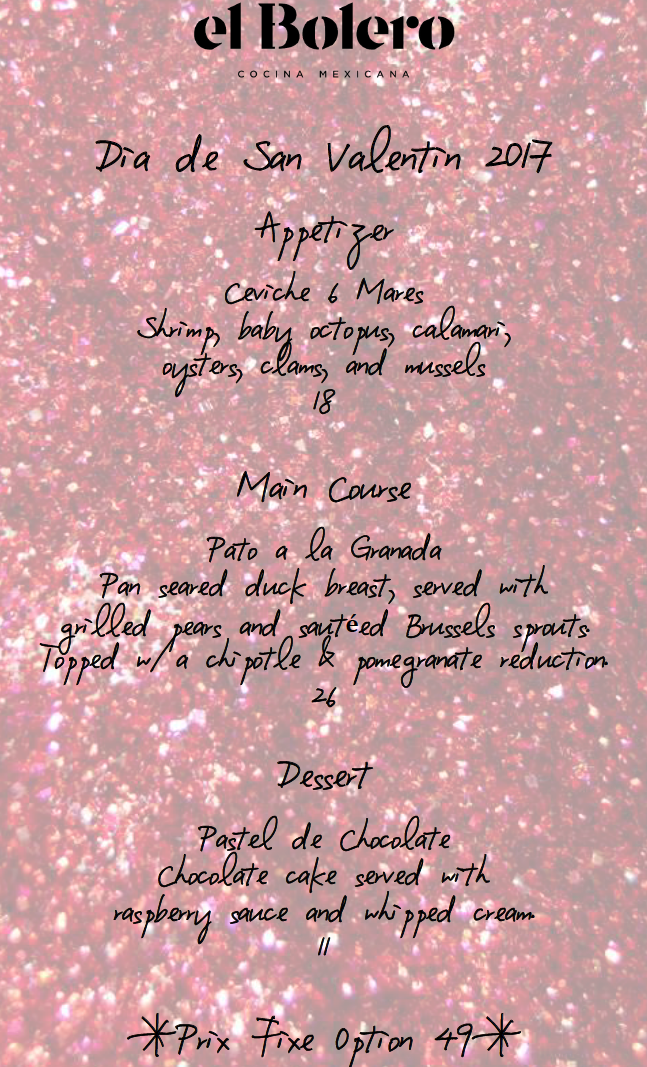 el Bolero
COCINA MEXICANA
Dia de San Valentin 2017
Appetizer
Ceviche 6 Mares
Shrimp, baby octopus, calamari,
oysters, clams, and mussels
18
Main Course
Pato a la Granada
Pan seared duck breast, served with
grilled pears and sautéed Brussels sprouts.
Topped w/ a chipotle & pomegranate reduction.
26
Dessert
Pastel de Chocolate
Chocolate cake served with
raspberry sauce and whipped cream.
11
*Prix Fixe Option 49*